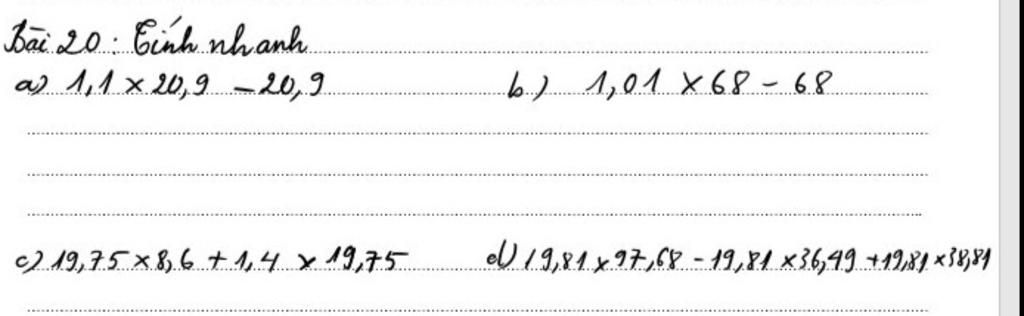 Bài 20: Tính nhanh
a) 1,1 × 20,9 - 20,9 b.) 1,01 × 68 - 68
c) 19,75 × 8,6 + 1,4 × 19,75 d) 19,81 × 97,68 - 19,81 × 36,49 + 19,81 × 38,81